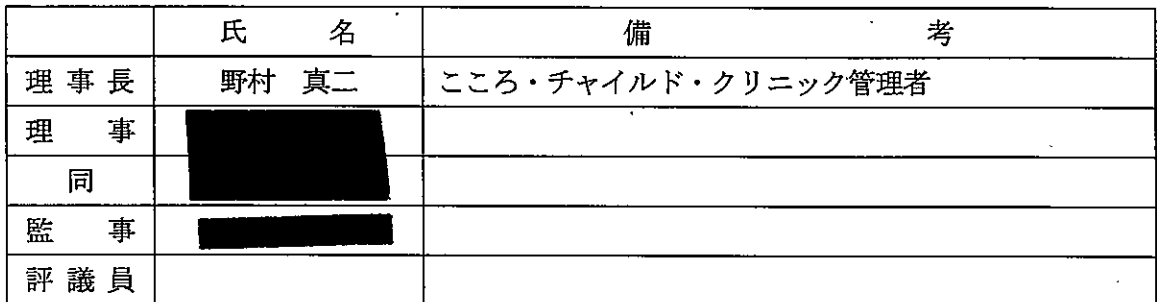 氏 名 備 考
理事長 野村 真二 こころ・チャイルド・クリニック管理者
理 事
同
監 事
評議員